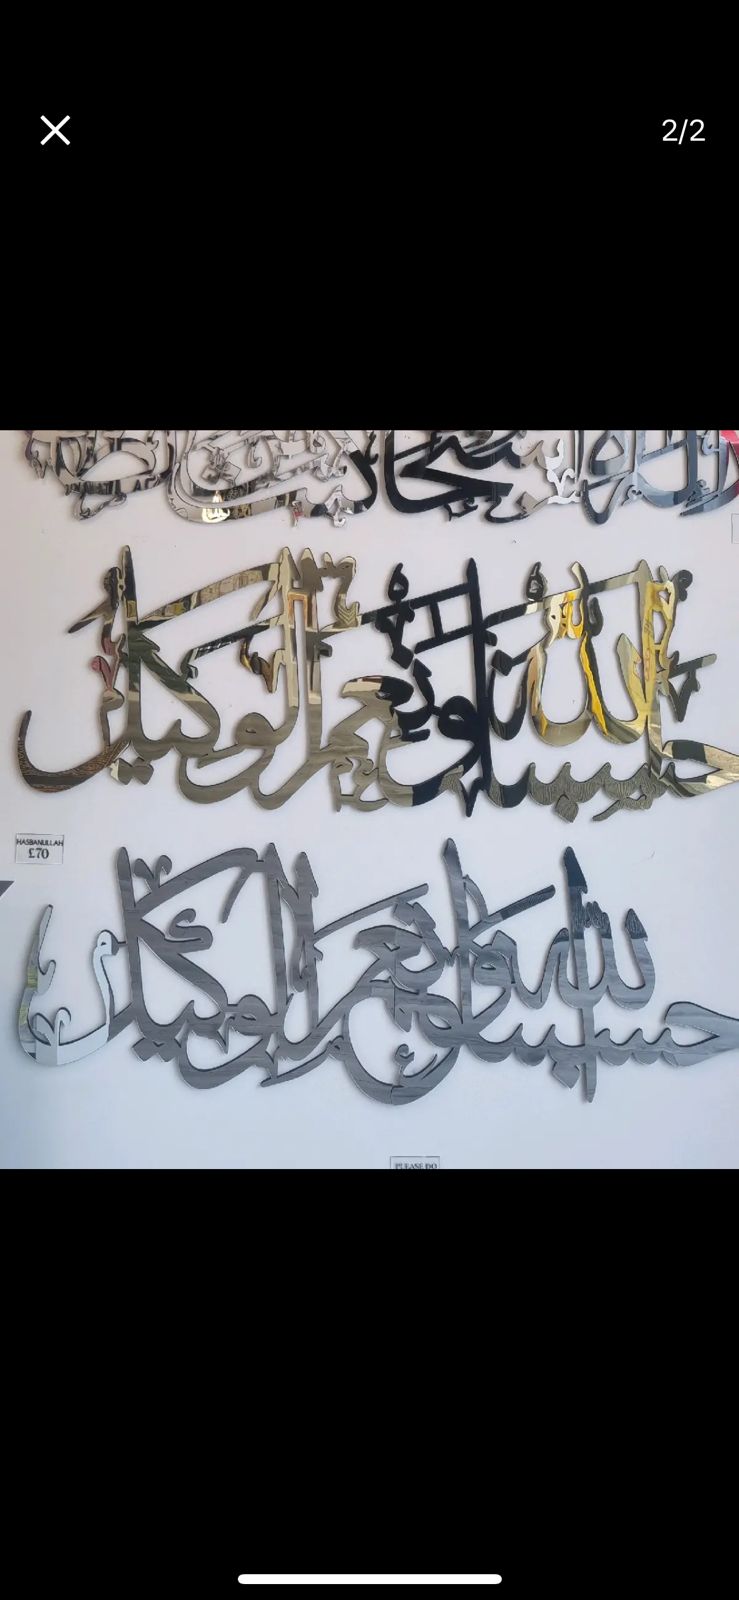 2/2
حسبنا الله ونعم الوكيل
HASBANULLAH
£70
حسبنا الله ونعم الوكيل
PLEASE DO